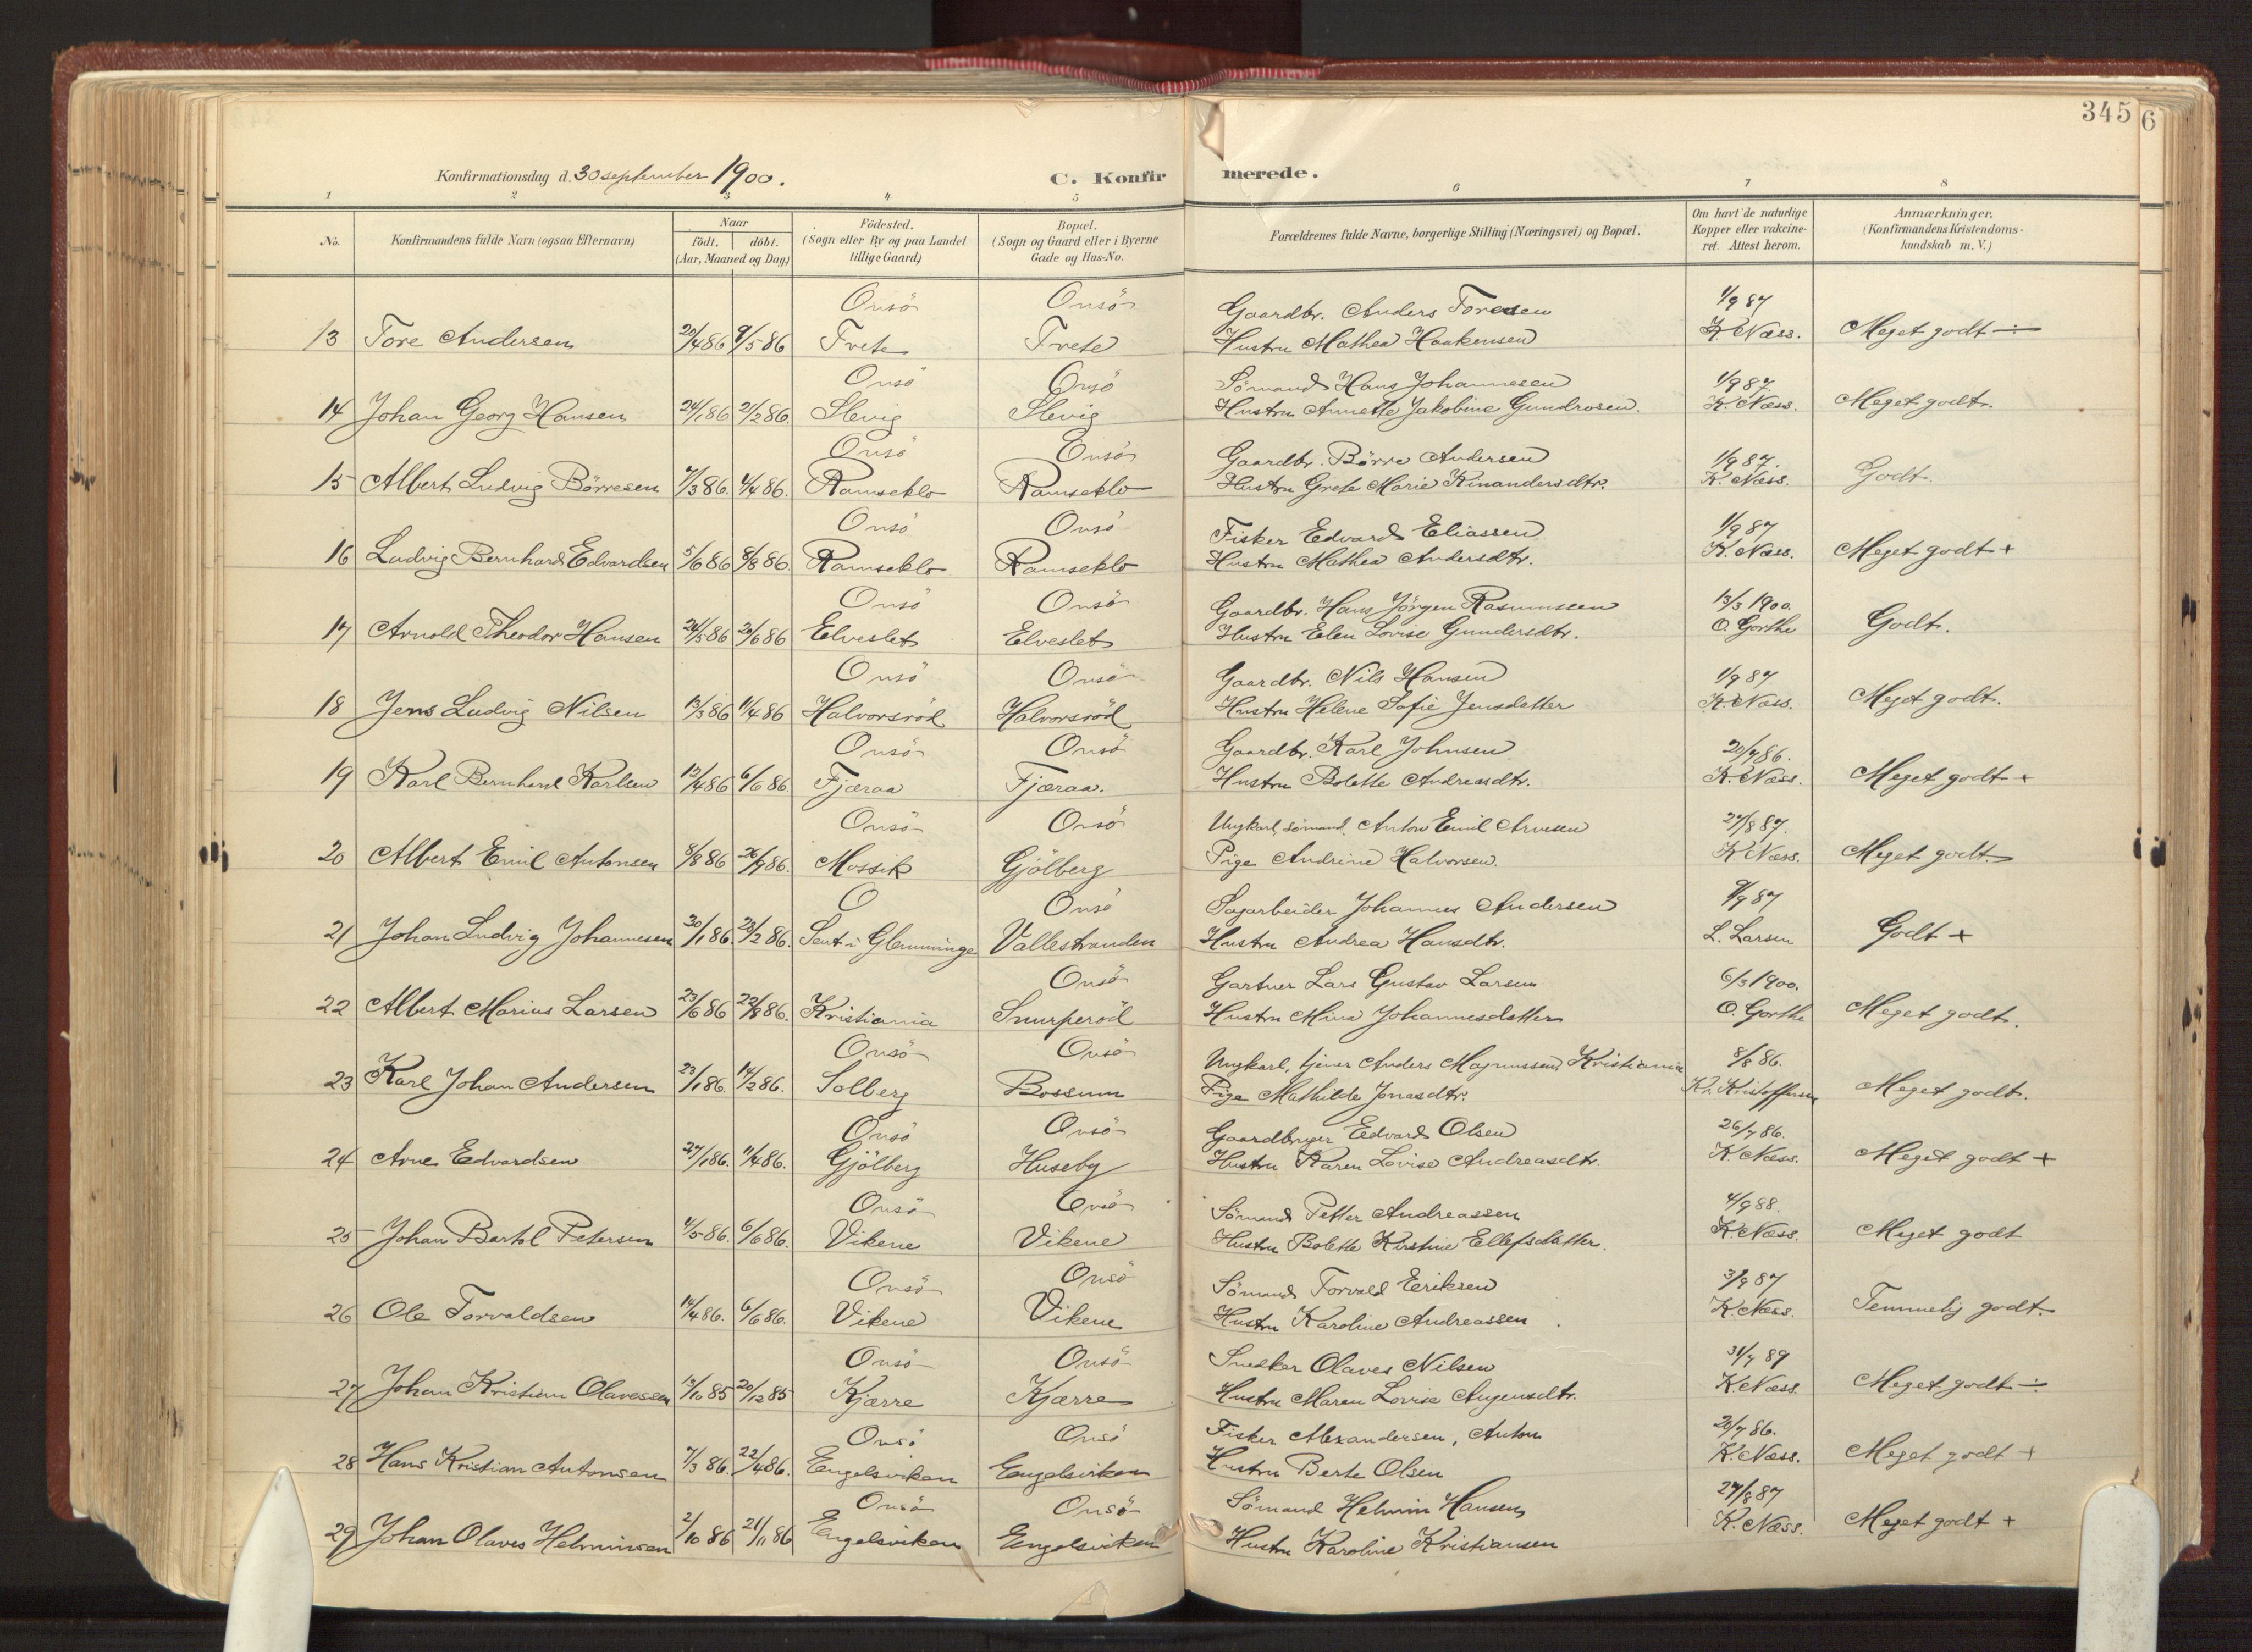 345
6
Konfirmationsdag d. 30 september 1900.
C. Konfir
merede.
1 2 3 4 5 6 7 8
No.
Konfirmandens fulde Navn (ogsaa Efternavn)
Naar
født. døbt.
(Aar, Maaned og Dag)
Fødested.
(Sogn eller By og paa Landet
tillige Gaard)
Bopæl.
(Sogn og Gaard eller i Byerne
Gade og Hus-No.
Forældrenes fulde Navne, borgerlige Stilling (Næringsvei) og Bopæl.
Om havt de naturlige
Kopper eller vakcine-
ret. Attest herom.
Anmærkninger.
(Konfirmandens Kristendoms-
kundskab m. V.)
Onsö Onsö Gaardbr. Anders Toresen 1/9 87
13 Tore Andersen 20/4 86 9/5 86 Trete Trete Hustru Mathea Haakensen K. Næss. Meget godt ÷
Onsö Onsö Sömand Hans Johannesen 1/9 87
14 Johan Georg Hansen 24/1 86 21/2 86. Slevig Slevig Hustru Annette Jakobine Gundrosen. K. Næss. Meget godt.
Onsö Onsö Gaardbr. Börre Andersen 1/9 87.
15 Albert Ludvig Börresen 7/3 86. 4/4 86. Ramseklo Ramseklo Hustru Grete Marie Kinandersdtr. K. Næss. Godt.
Onsö Onsö Fisker Edvard Eliassen 1/9 87
16 Ludvig Bernhard Edvardsen 5/6 86 8/8 86 Ramseklo Ramseklo Hustru Mathea Andersdtr. K. Næss. Meget godt +
Onsö Onsö Gaardbr. Hans Jörgen Rasmussen 13/3 1900.
17 Arnold Theodor Hansen 24/5 86 20/6 86 Elveslet Elveslet Hustru Elen Lovise Gundersdtr. O. Gorthe Godt.
Onsö Onsö Gaardbr. Nils Hansen 1/9 87
18 Jens Ludvig Nilsen 13/3 86 11/4 86 Halvorsröd Halvorsröd Hustru Helene Sofie Jensdatter K. Næss. Meget godt.
Onsö Onsö Gaardbr. Karl Johnsen 20/7 86.
19 Karl Bernhard Karlsen 12/4 86 6/6 86. Fjæraa Fjæraa. Hustru Bolette Andreasdtr. K. Næss. Meget godt +
Onsö Onsö Ungkarl, sömand, Anton Emil Arnesen 27/8 87.
20 Albert Emil Antonsen 8/8 86 26/9 86. Mossik Gjölberg Pige Andrine Halvorsen. K Næss. Meget godt
O Onsö Sagarbeider Johannes Andersen 9/9 87
21 Johan Ludvig Johannesen 30/1 86. 28/2 86. Sent i Glemminge Vallestranden Hustru Andrea Hansdtr. L. Larsen Godt +
Onsö Gartner Lars Gustav Larsen 6/3 1900.
22 Albert Marius Larsen 23/6 86 22/8 86. Kristiania Snurperöd Hustru Mina Johannesdatter O. Gorthe Meget godt.
Onsö Onsö Ungkarl, tjener Anders Magnussen, Kristiania 8/8 86.
23 Karl Johan Andersen 23/1 86. 14/2 86. Solberg Bossum Pige Mathilde Jonasdtr. Kr. Kristoffersen Meget godt.
Onsö Onsö Gaardbruger Edvard Olsen 26/7 86.
24 Arne Edvardsen 27/1 86. 11/4 86. Gjölberg Huseby Hustru Karen Lovise Andreasdtr. K. Næss. Meget godt +
Onsö Onsö Sömand Petter Andreassen 4/9 88.
25 Johan Bartol Petersen 4/5 86. 6/6 86. Vikene Vikene Hustru Bolette Kirstine Ellefsdatter. K. Næss. Meget godt
Onsö Onsö Sömand Torvald Eriksen 3/9 87
26 Ole Torvaldsen 14/4 86. 6/6 86. Vikene Vikene Hustru Karoline Andreassen K. Næss. Temmelig godt.
Onsö Onsö Snedker Olaves Nilsen 31/7 89
27 Johan Kristian Olavesen 13/10 85 20/12 85 Kjærre Kjærre Hustru Maren Lovise Augensdtr. K Næss. Meget godt ÷
Onsö Onsö Fisker Alexandersen, Anton 20/7 86.
28 Hans Kristian Antonsen 7/3 86. 22/4 86. Engelsviken Engelsviken Hustru Berte Olsen K. Næss. Meget godt +
Onsö Onsö Sömand Helmin Hansen 27/8 87
29 Johan Olaves Helminsen 2/10 86 21/11 86 Engelsviken Engelsviken Hustru Karoline Kristiansen K. Næss. Meget godt +